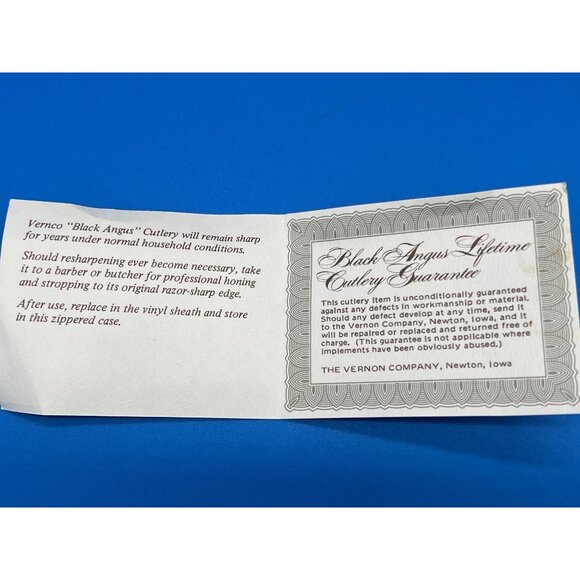 Vernco "Black Angus" Cutlery will remain sharp
for years under normal household conditions.
Should resharpening ever become necessary, take
it to a barber or butcher for professional honing
and stropping to its original razor-sharp edge.
After use, replace in the vinyl sheath and store
in this zippered case.
Black Angus Lifetime
Cutlery Guarantee
This cutlery item is unconditionally guaranteed
against any defects in workmanship or material.
Should any defect develop at any time, send it
to the Vernon Company, Newton, Iowa, and it
will be repaired or replaced and returned free of
charge. (This guarantee is not applicable where
implements have been obviously abused.)
THE VERNON COMPANY, Newton, Iowa